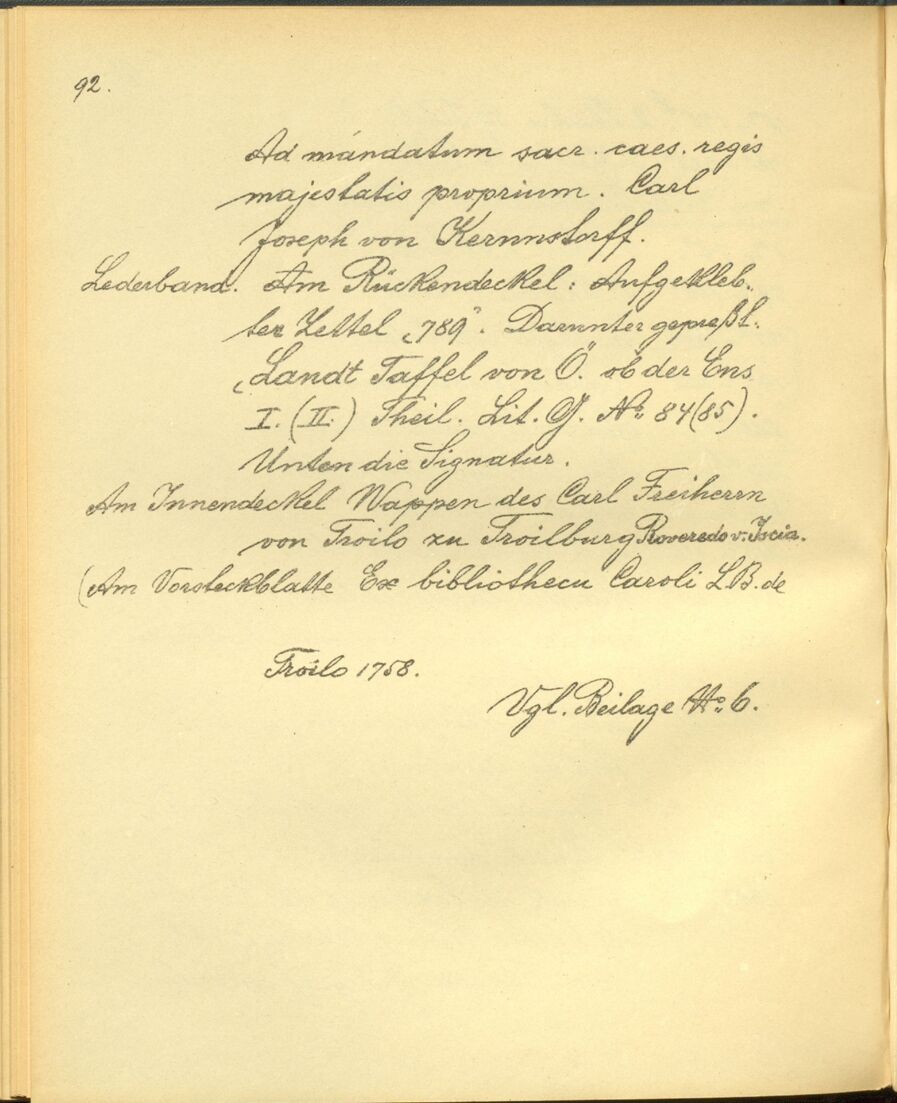 92.
Ad mandatum sacr. caes. regis
majestatis proprium. Carl
Joseph von Kernnstorff.
Lederband. Am Rückendeckel: Aufgekleb-
ter Zettel „789". Darunter gepreßt:
„Landt Taffel von Ö. ob der Ens
I. (II.) Theil. Lit. G. No. 84(85).
Unten die Signatur.
Am Innendeckel Wappen des Carl Freiherrn
von Troilo zu Troilburg Roveredo v.
(Am Vorsteckblatte Ex bibliothecu Caroli L.B. de
Troilo 1758.
Vgl. Beilage No. 6.